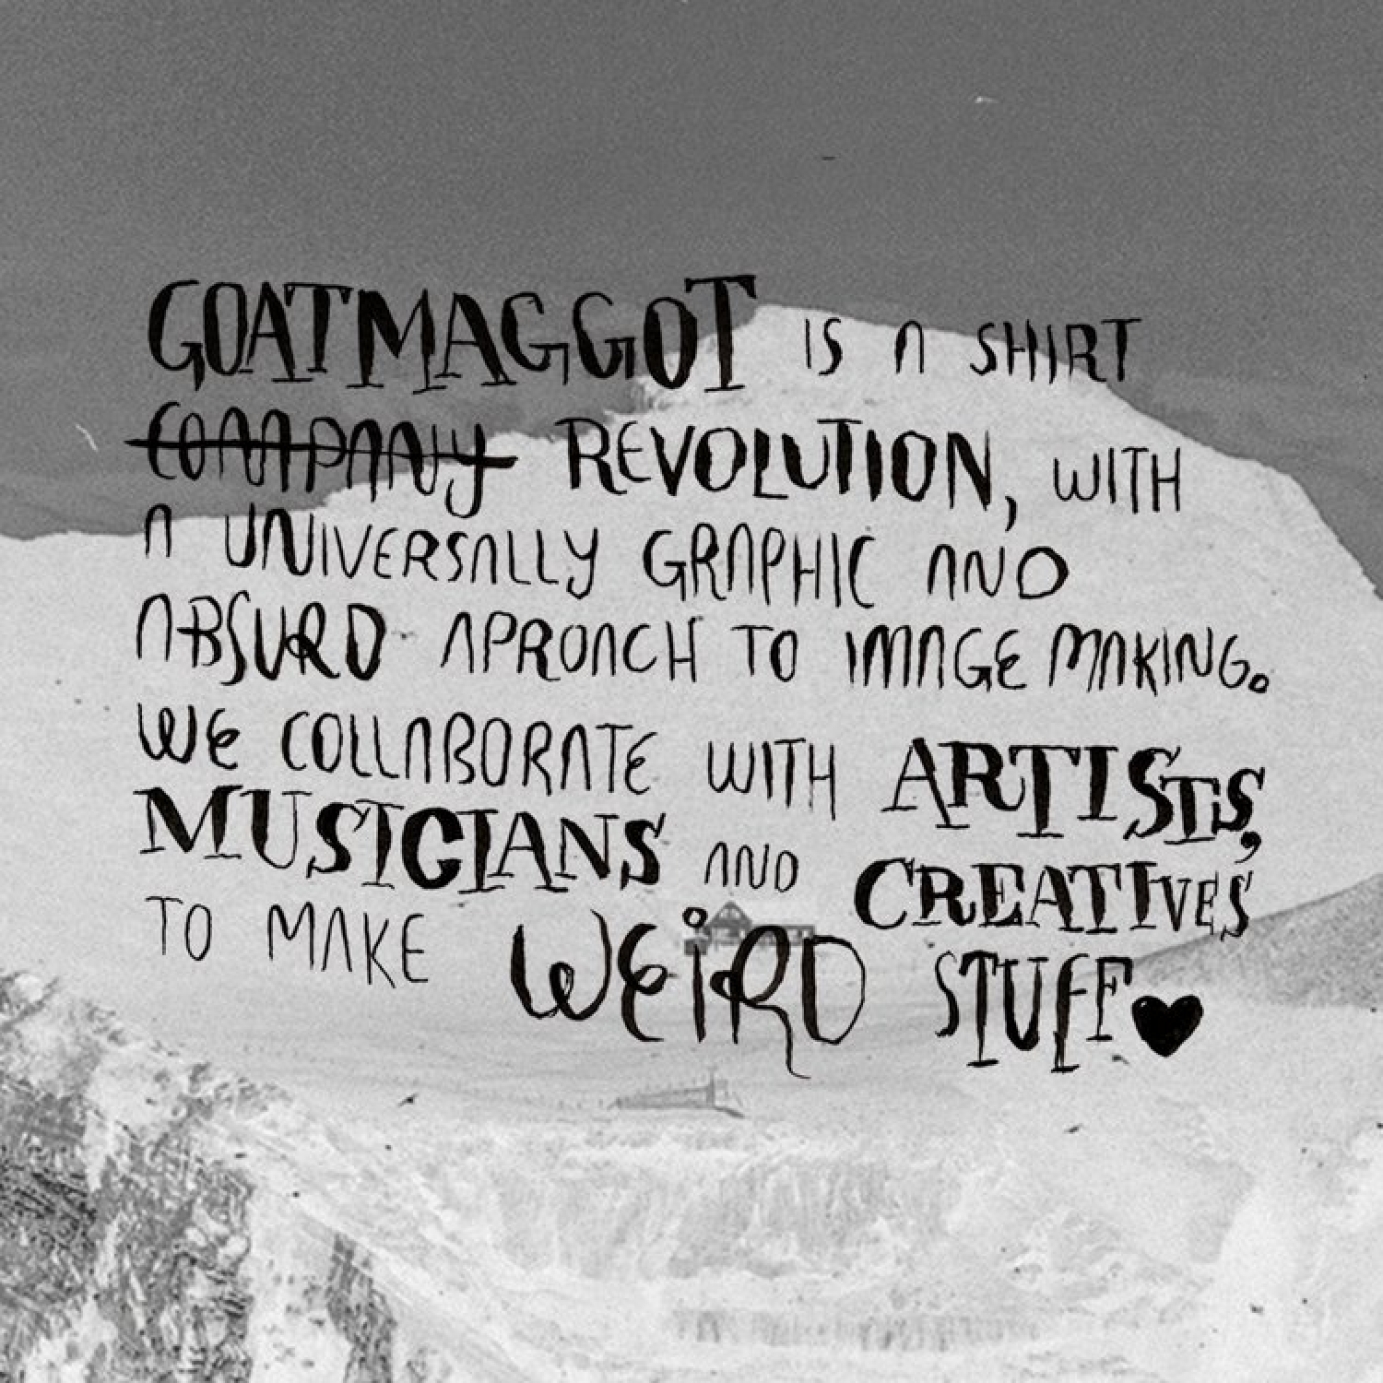 GOATMAGGOT IS A SHIRT
COMPANY REVOLUTION, WITH
A UNIVERSALLY GRAPHIC AND
ABSURD APROACH TO IMAGE MAKING.
WE COLLABORATE WITH ARTISTS,
MUSICIANS AND CREATIVES
TO MAKE WEIRD STUFF♥